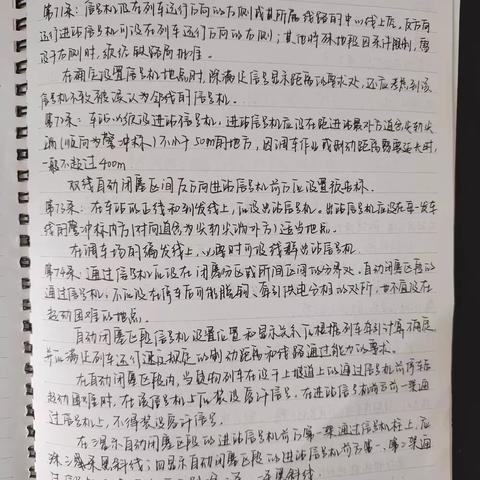 第71条：信号机设在列车运行方向的左侧或其所属线路的中心线上层。反方向
运行进站信号机可设在列车运行方向的右侧；其他特殊地段因条件限制，需
设于右侧时，须经铁路局批准。
在确定设置信号机地点时，除满足信号显示距离的要求外，还应考虑到该
信号机不致被误认为邻线的信号机。
第72条：车站必须设进站信号机，进站信号机应设在距进站最外方道岔尖轨尖
端(顺向为警冲标)不小于50m的地方，因调车作业或制动距离需要延长时，
一般不超过400m
双线自动闭塞区间反方向进站信号机前方应设置预告标。
第73条：在车站的正线和到发线上，应设出站信号机。出站信号机应设在每一发车
线的警冲标内方(对向道岔为尖轨尖端外方)适当地点。
在调车场的编发线上，必要时可设线群出站信号机。
第74条：通过信号机应设在闭塞分区或所间区间的分界处，自动闭塞区段的
通过信号机，不应设在停车后可能脱钩、牵引供电分相的处所，也不宜设在
起动困难的地点。
自动闭塞区段信号机设置位置和显示关系应根据列车牵引计算确定，
并应满足列车运行速度规定的制动距离和线路通过能力的要求。
在自动闭塞区段内，当货物列车在设于上坡道上的通过信号机前停车后
起动困难时，在该信号机上应装设容许信号。在进站信号机前方第一架通
过信号机上，不得装设容许信号。
在三显示自动闭塞区段的进站信号机前方第一架通过信号机柱上，应
涂三条黑斜线；四显示自动闭塞区段的进站信号机前方第一、第二架通